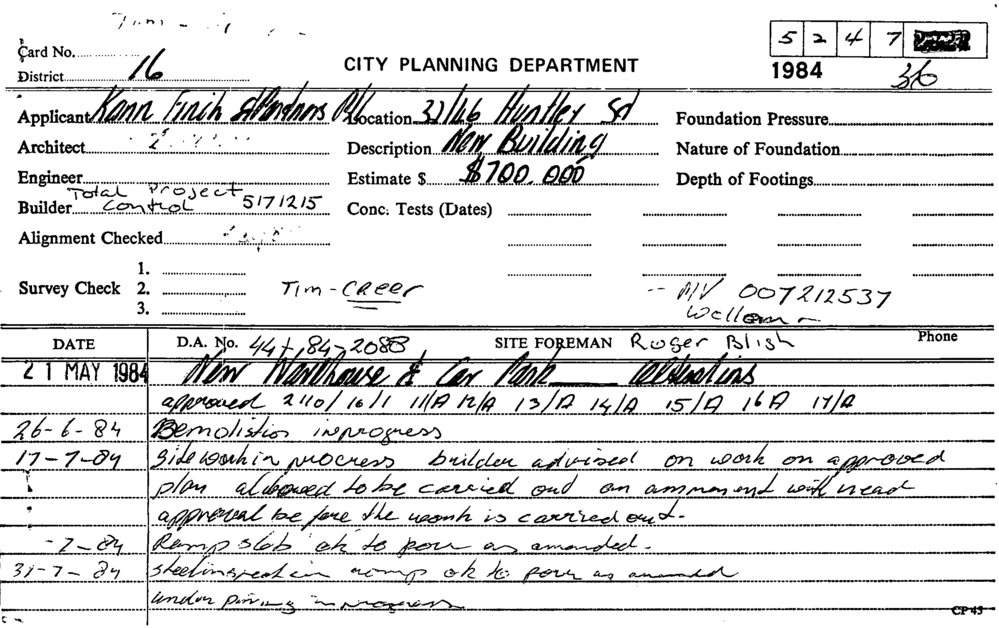 5 2 4 7
Card No.
District 16
CITY PLANNING DEPARTMENT
1984 36
Applicant Kann Finch & Partners P/L Location 32/46 Huntley St Foundation Pressure
Architect Description New Building Nature of Foundation
Engineer Estimate $ $700,000 Depth of Footings
Total Project
Builder Control 5171215 Conc. Tests (Dates)
Alignment Checked
1.
Survey Check 2. Tim-Creer 007212537
3.
DATE D.A. No. 44-84-2088 SITE FOREMAN Roger Blish Phone
21 MAY 1984 New Warehouse & Car Park alterations
approved 2110/10/1 11/A 12/A 13/A 14/A 15/A 16A 17/A
26-6-84 Demolistion inprogress
17-7-84 Sidework in procress builder advised on work on approved
plan allowed to be carried out an ammement will nead
approval be fore the work is carried out.
-7-84 Ramp slab ok to pour as amanded.
31-7-84 Steel inspection ramp ok to pour as amanded
under pinning in progress
CP 43